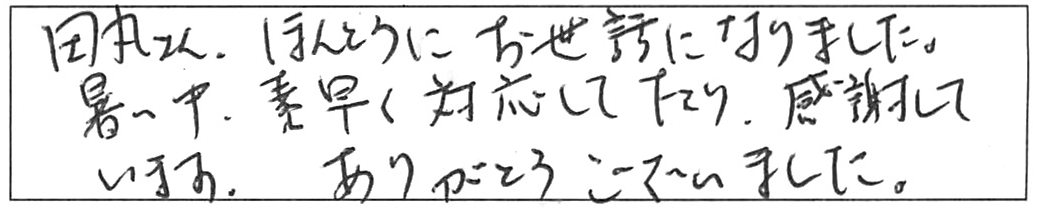 田丸さん、ほんとうにお世話になりました。
暑い中、素早く対応して下さり、感謝して
います。ありがとうございました。